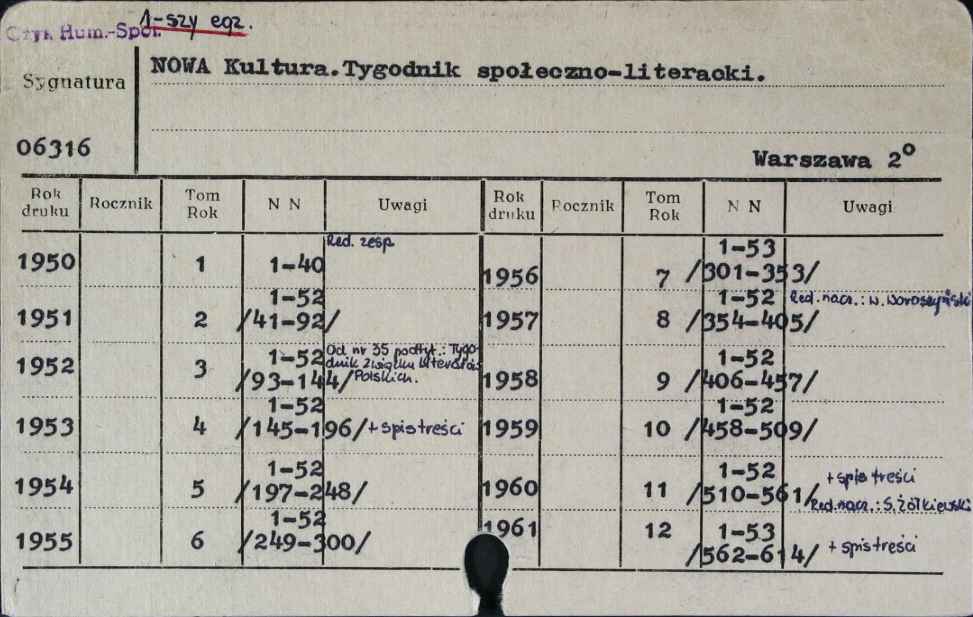 1-szy egz.
Czyt. Hum.-Społ.
Sygnatura
NOWA Kultura.Tygodnik społeczno-literacki.
06316
Warszawa 2°
Rok druku Rocznik Tom Rok N N Uwagi Rok druku Rocznik Tom Rok N N Uwagi
1950 1 1-40 Red. zesp.
1951 2 1-52 /41-92/
1952 3 1-52 /93-144/ Od nr 35 podtyt.: Tygodnik Związku Literatów Polskich.
1953 4 1-52 /145-196/ +spis treści
1954 5 1-52 /197-248/
1955 6 1-52 /249-300/
1956 7 1-53 /301-353/
1957 8 1-52 /354-405/ Red. nacz.: W. Woroszylski
1958 9 1-52 /406-457/
1959 10 1-52 /458-509/
1960 11 1-52 /510-561/ +spis treści Red. nacz.: S. Żółkiewski
1961 12 1-53 /562-614/ +spis treści